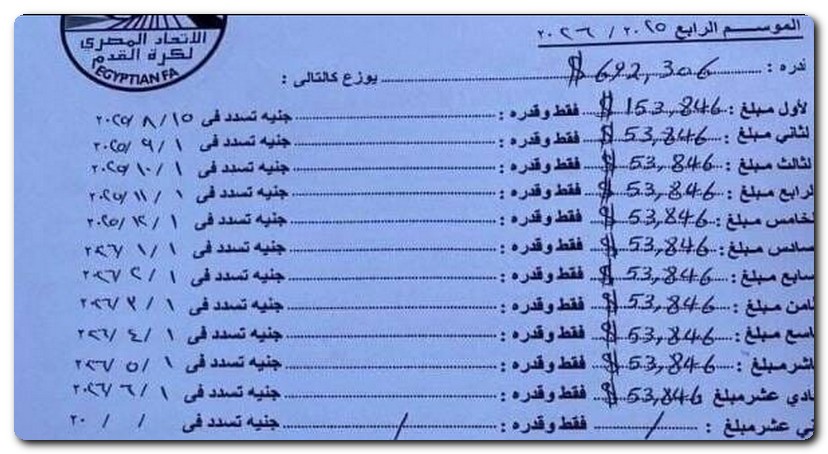 الموسم الرابع ٢٠٢٥ / ٢٠٢٦
الاتحاد المصري
لكرة القدم
EGYPTIAN FA
قدره : $ 692,306 يوزع كالتالى :
لأول مبلغ : $ 153,846 فقط وقدره : جنيه تسدد فى ١٥ / ٨ / ٢٠٢٥
لثاني مبلغ : $ 53,846 فقط وقدره : جنيه تسدد فى ١ / ٩ / ٢٠٢٥
لثالث مبلغ : $ 53,846 فقط وقدره : جنيه تسدد فى ١ / ١٠ / ٢٠٢٥
لرابع مبلغ : $ 53,846 فقط وقدره : جنيه تسدد فى ١ / ١١ / ٢٠٢٥
لخامس مبلغ : $ 53,846 فقط وقدره : جنيه تسدد فى ١ / ١٢ / ٢٠٢٥
سادس مبلغ : $ 53,846 فقط وقدره : جنيه تسدد فى ١ / ١ / ٢٠٢٦
سابع مبلغ : $ 53,846 فقط وقدره : جنيه تسدد فى ١ / ٢ / ٢٠٢٦
امن مبلغ : $ 53,846 فقط وقدره : جنيه تسدد فى ١ / ٣ / ٢٠٢٦
اسع مبلغ : $ 53,846 فقط وقدره : جنيه تسدد فى ١ / ٤ / ٢٠٢٦
اشر مبلغ : $ 53,846 فقط وقدره : جنيه تسدد فى ١ / ٥ / ٢٠٢٦
ادي عشر مبلغ $ 53,846 فقط وقدره : جنيه تسدد فى ١ / ٦ / ٢٠٢٦
ني عشر مبلغ : / فقط وقدره : / جنيه تسدد فى / / ٢٠